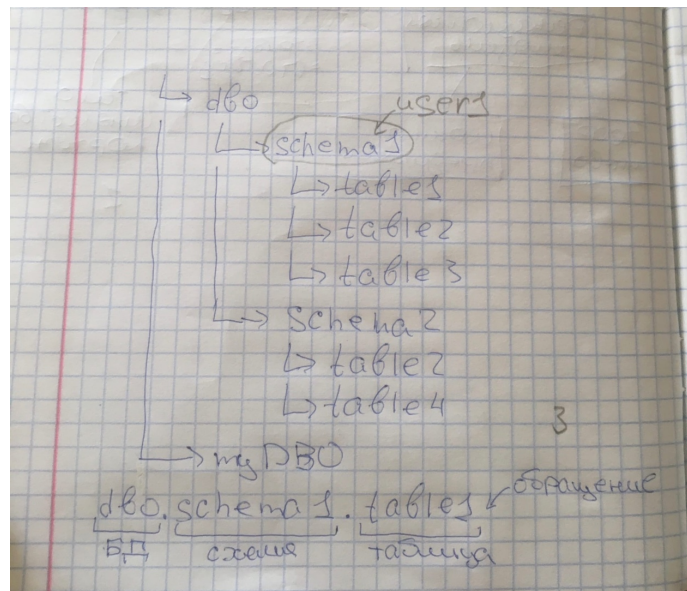 dbo
user1
schema1
table1
table2
table3
schema2
table2
table4
3
myDBO
dbo.schema1.table1 обращение
БД схема таблица